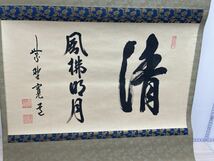 清
風払明月
紫野寛道